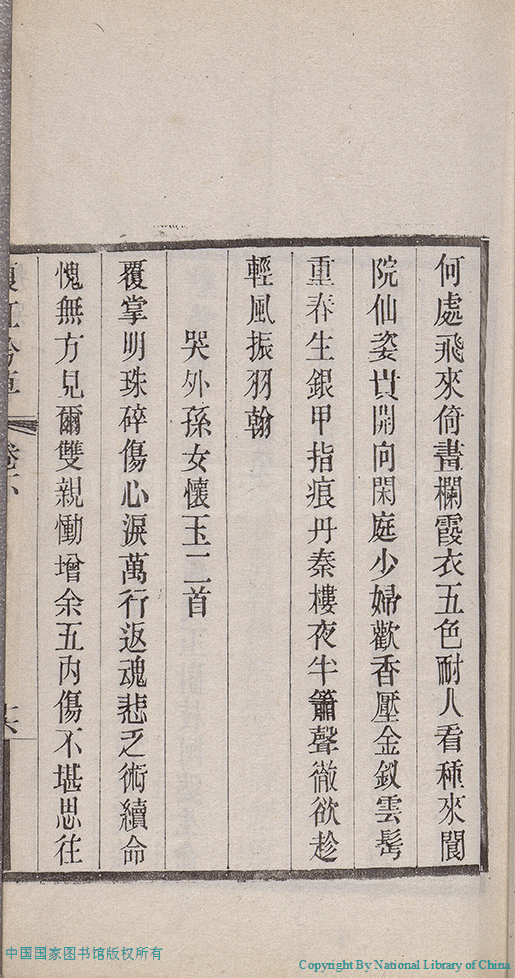 何處飛來倚畫欄霞衣五色耐人看種來閬
院仙姿貴開向閑庭少婦歡香壓金釵雲髩
重春生銀甲指痕丹秦樓夜半簫聲徹欲趁
輕風振羽翰
哭外孫女懷玉二首
覆掌明珠碎傷心淚萬行返魂悲乏術續命
愧無方見爾雙親慟增余五內傷不堪思往
卷下
中国国家图书馆版权所有
Copyright By National Library of China